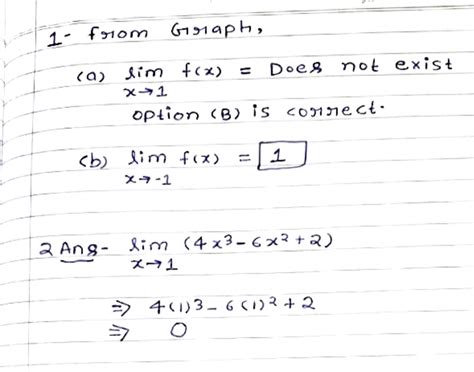 1- from Graph,
(a) lim f(x) = Does not exist
x→1
option (B) is correct.
(b) lim f(x) = 1
x→-1
2 Ans- lim (4x³-6x²+2)
x→1
⇒ 4(1)³-6(1)²+2
⇒ 0